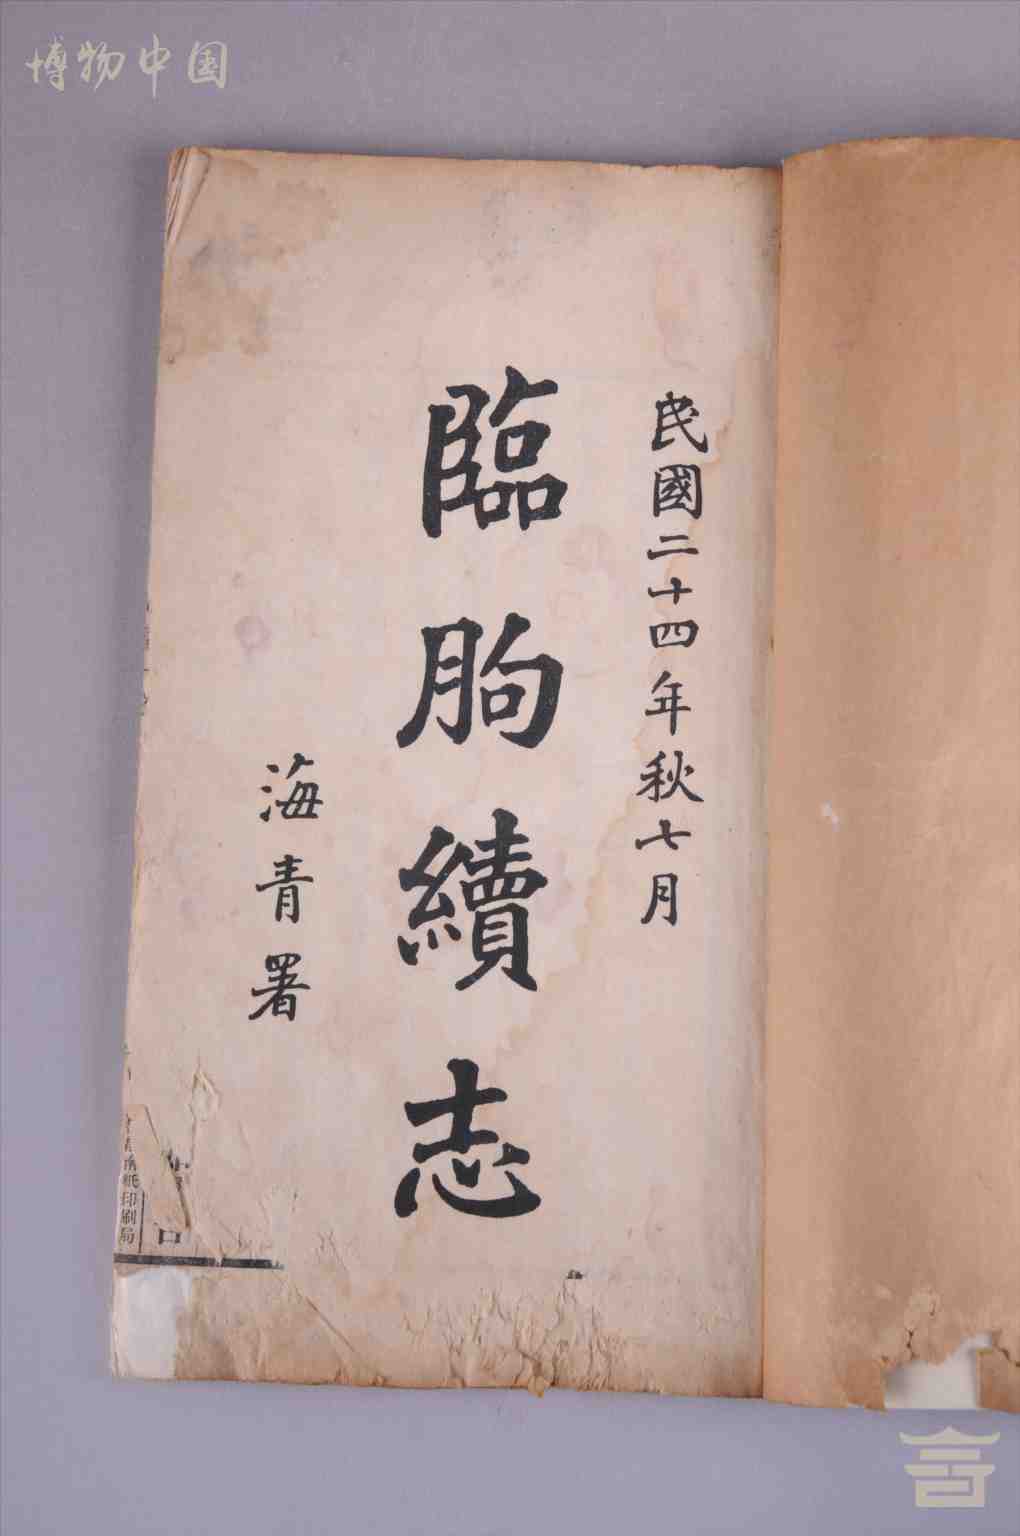 博物中国
民國二十四年秋七月
臨朐續志
海青署
紙印刷局